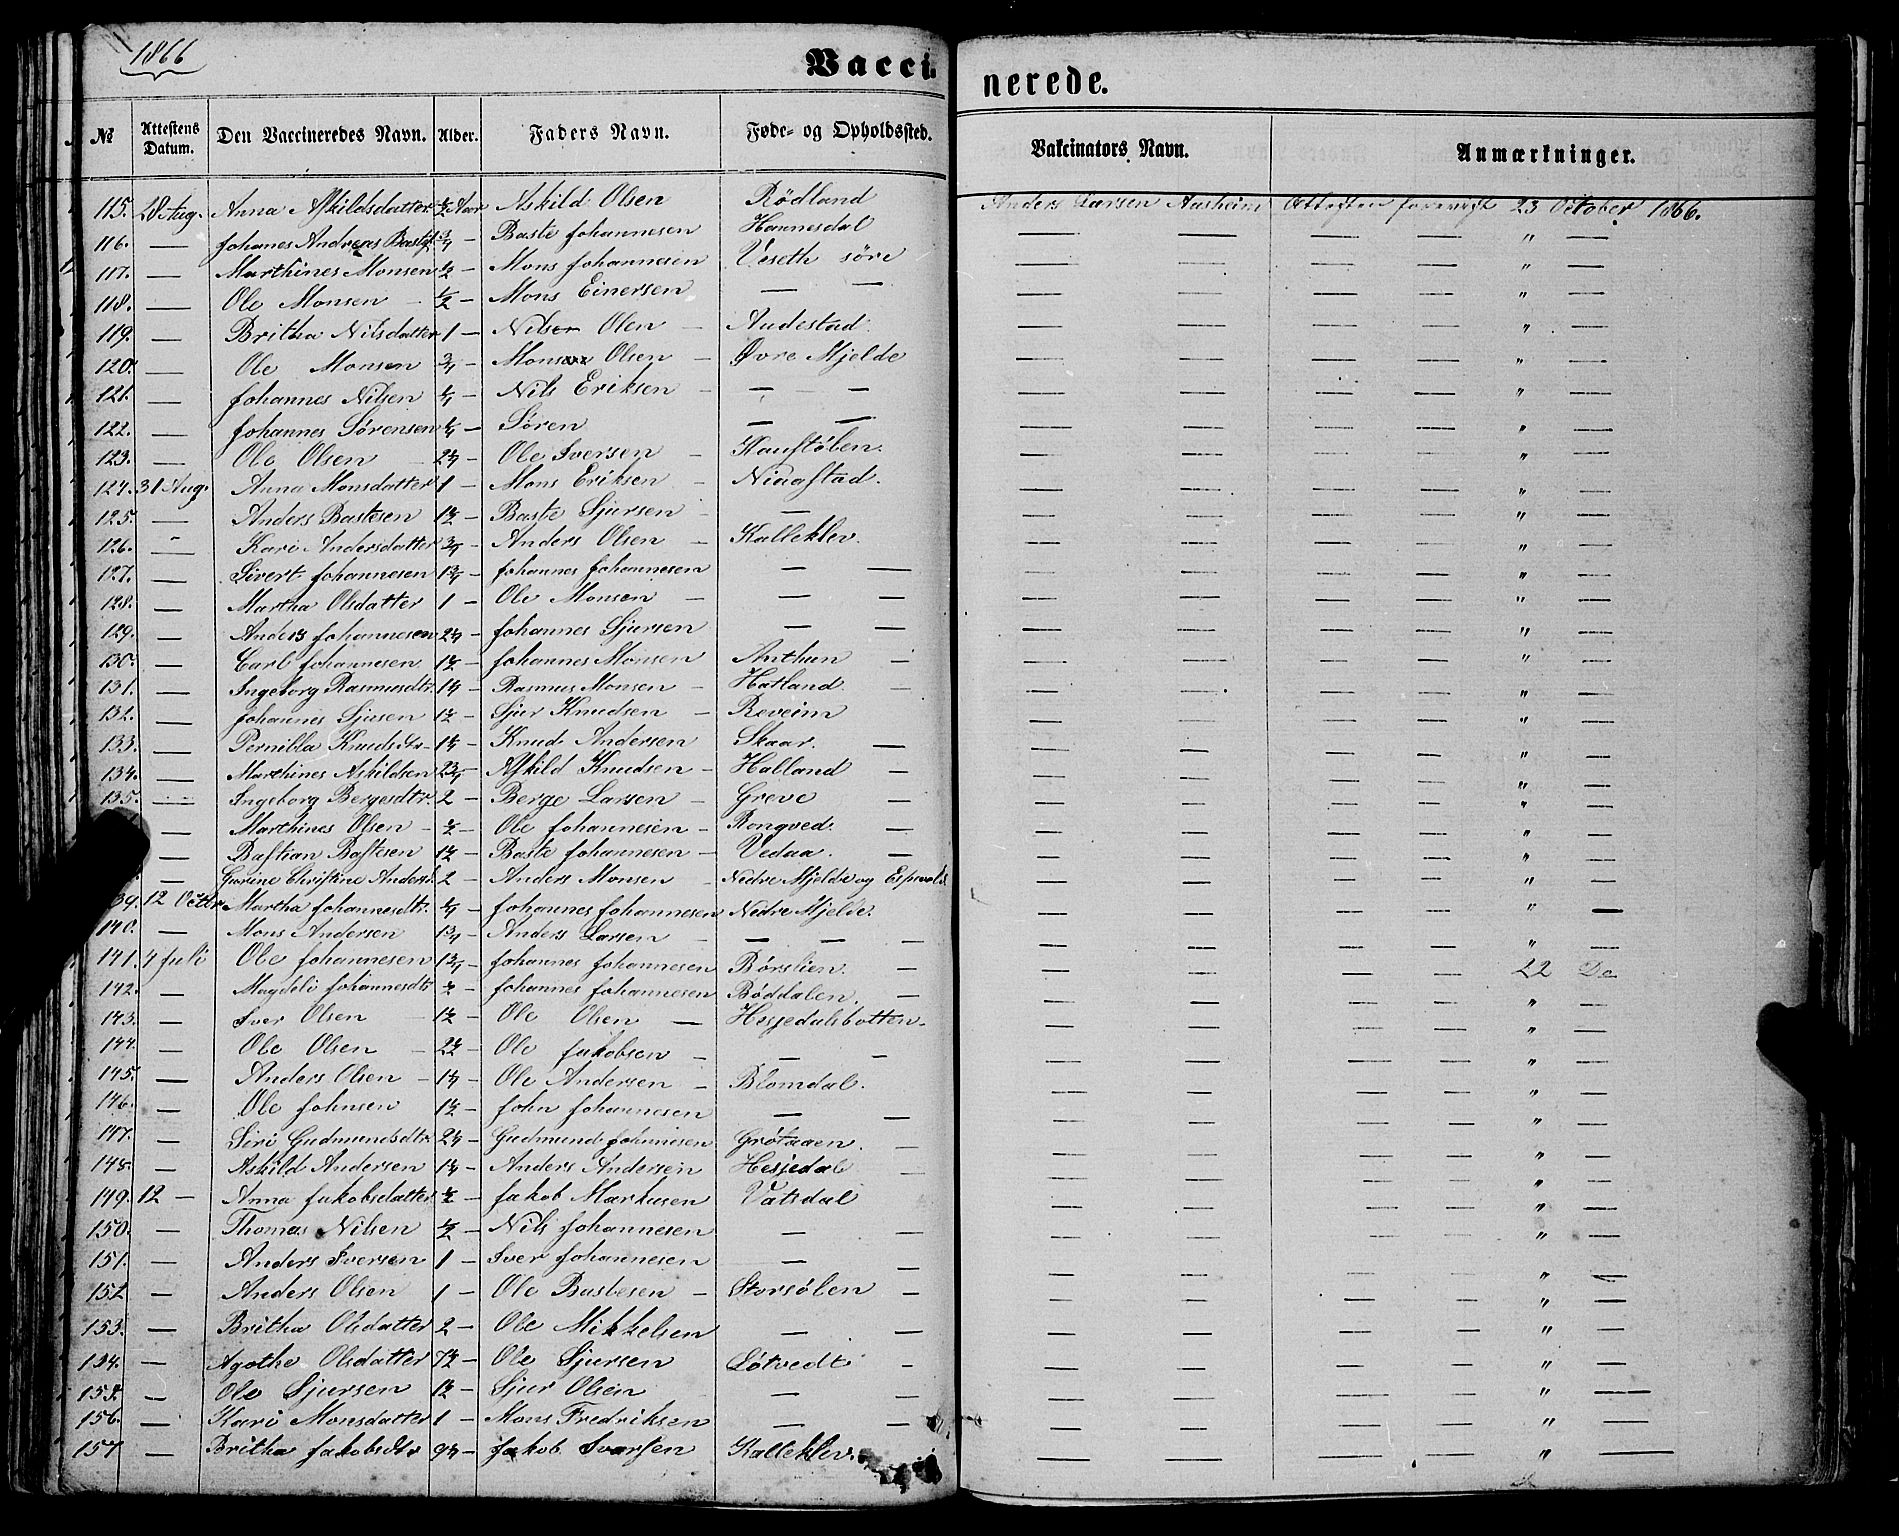 1866
Vaccinerede.
№ Attestens Datum. Den Vaccineredes Navn. Alder. Faders Navn. Føde- og Opholdssted. Vakcinators Navn. Anmærkninger.
115. 28 Aug. Anna Askildsdatter ½ Aar Askild Olsen Rödland Anders Larsen Aasheim Attesten forevist 23 October 1866.
116. — Johanes Andreas Bastes ¾ — Baste Johannesen Hannesdal — — — — " —
117. — Marthines Monsen ½ — Mons Johannesen Veseth söre — — — — " —
118. — Ole Monsen — ½ — Mons Einersen — — — — — — " —
119. — Britha Nilsdatter 1 — Nils Olen — Audestad — — — — " —
120. — Ole Monsen ¾ — Mons Olsen — Øvre Mjelde — — — — " —
121. — Johannes Nilsen ¼ — Nils Eriksen — — — — — — — " —
122. — Johannes Sörensen ¼ — Sören — — — — — — " —
123. — Ole Olsen — 2¼ — Ole Iversen — Kauftølen. — — — — " —
124. 31 Aug. Anna Monsdatter 1 — Mons Eriksen — — — — — " —
125. — Anders Bastesen 1½ — Baste Sjursen — — — — — — " —
126. — Kari Andersdatter ¾ — Anders Olsen — Kalleklev. — — — — " —
127. — Sivert Johannesen 1¾ — Johannes Johannesen — — — — — — " —
128. — Martha Olsdatter 1 — Ole Monsen — — — — — — — " —
129. — Anders Johannesen 2¼ — Johannes Sjursen — — — — — — " —
130. — Carl Johannesen 1½ — Johannes Monsen Anthun — — — — — " —
131. — Ingeborg Rasmusdtr. 1¼ — Rasmus Monsen — Hatland. — — — — — " —
132. — Johannes Sjusen 1½ — Sjur Knudsen — Reveim — — — — " —
133. — Pernilla Knudsdtr — 1¼ — Knud Andersen Skaar. — — — — — " —
134. — Marthines Askildsen 2¾ — Askild Knudsen — Halland — — — — — " —
135. — Ingeborg Bergesdtr. 2 — Berge Larsen — Greve — — — — — " —
— Marthines Olsen — ½ — Ole Johannesen — Rongved. — — — — — " —
— Bastian Bastesen 1½ — Baste Johannesen — Vedaa. — — — — — " —
— Gurine Christine Andersd. 2 — Anders Monsen — Nedre Mjelde og — — — — " —
39. 12 Octbr Martha Johannesdtr. ¼ — Johannes Johannesen Nedre Mjelde. — — — — " —
140. — Mons Andersen 1¾ — Anders Larsen — — — — — — — — " —
141. 4 Juli Ole Johannesen 1¾ — Johannes Johannesen Børslien. — — — — — 22 Do
142. — Magdeli Johannesdtr ½ — Johannes Johannesen Bøddalen. — — — — — " —
143. — Iver Olsen — 1½ — Ole Olsen — Hesjedalsbotten. — — — — " —
144. — Ole Olsen — 2½ — Ole Jakobsen — — — — — — — " —
145. — Anders Olsen — 1¼ — Ole Andersen — Blomdal. — — — — " —
146. — Ole Johnsen 1½ — John Johannesen — — — — — — " —
147. — Siri Gudmundsdtr. 2¼ — Gudmund Johannesen Grøtaaen. — — — — — " —
148. — Askild Andersen 1¼ — Anders Andersen Hesjedal — — — — — " —
149. 12 — Anna Jakobsdatter ½ — Jakob Markusen Vatsdal — — — — " —
150. — Thomas Nilsen ½ — Nils Johannesen — — — — — — " —
151. — Anders Iversen 1 — Iver Johannesen — — — — — — " —
152 — Anders Olsen 1 — Ole Bastesen — Storsølen — — — — — " —
153. — Britha Olsdatter 2 — Ole Mikkelsen — — — — — — " —
154. — Agothe Olsdatter 7½ — Ole Sjursen Løtvedt — — — — — " —
155. — Ole Sjursen 1½ — Sjur Olsen — — — — — — " —
156. — Kari Monsdatter 1 — Mons Fredriksen — — — — — — " —
157 — Britha Jakobsdtr 9½ — Jakob Ivarsen Kalleklev. — — — — " —